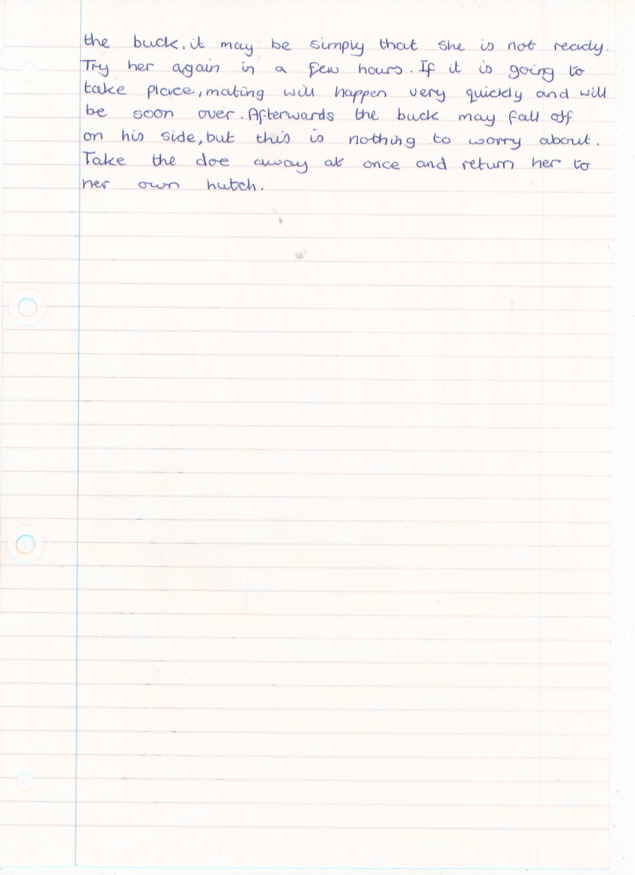 the buck. it may be simply that she is not ready.
Try her again in a few hours. If it is going to
take place, mating will happen very quickly and will
be soon over. Afterwards the buck may fall off
on his side, but this is nothing to worry about.
Take the doe away at once and return her to
her own hutch.